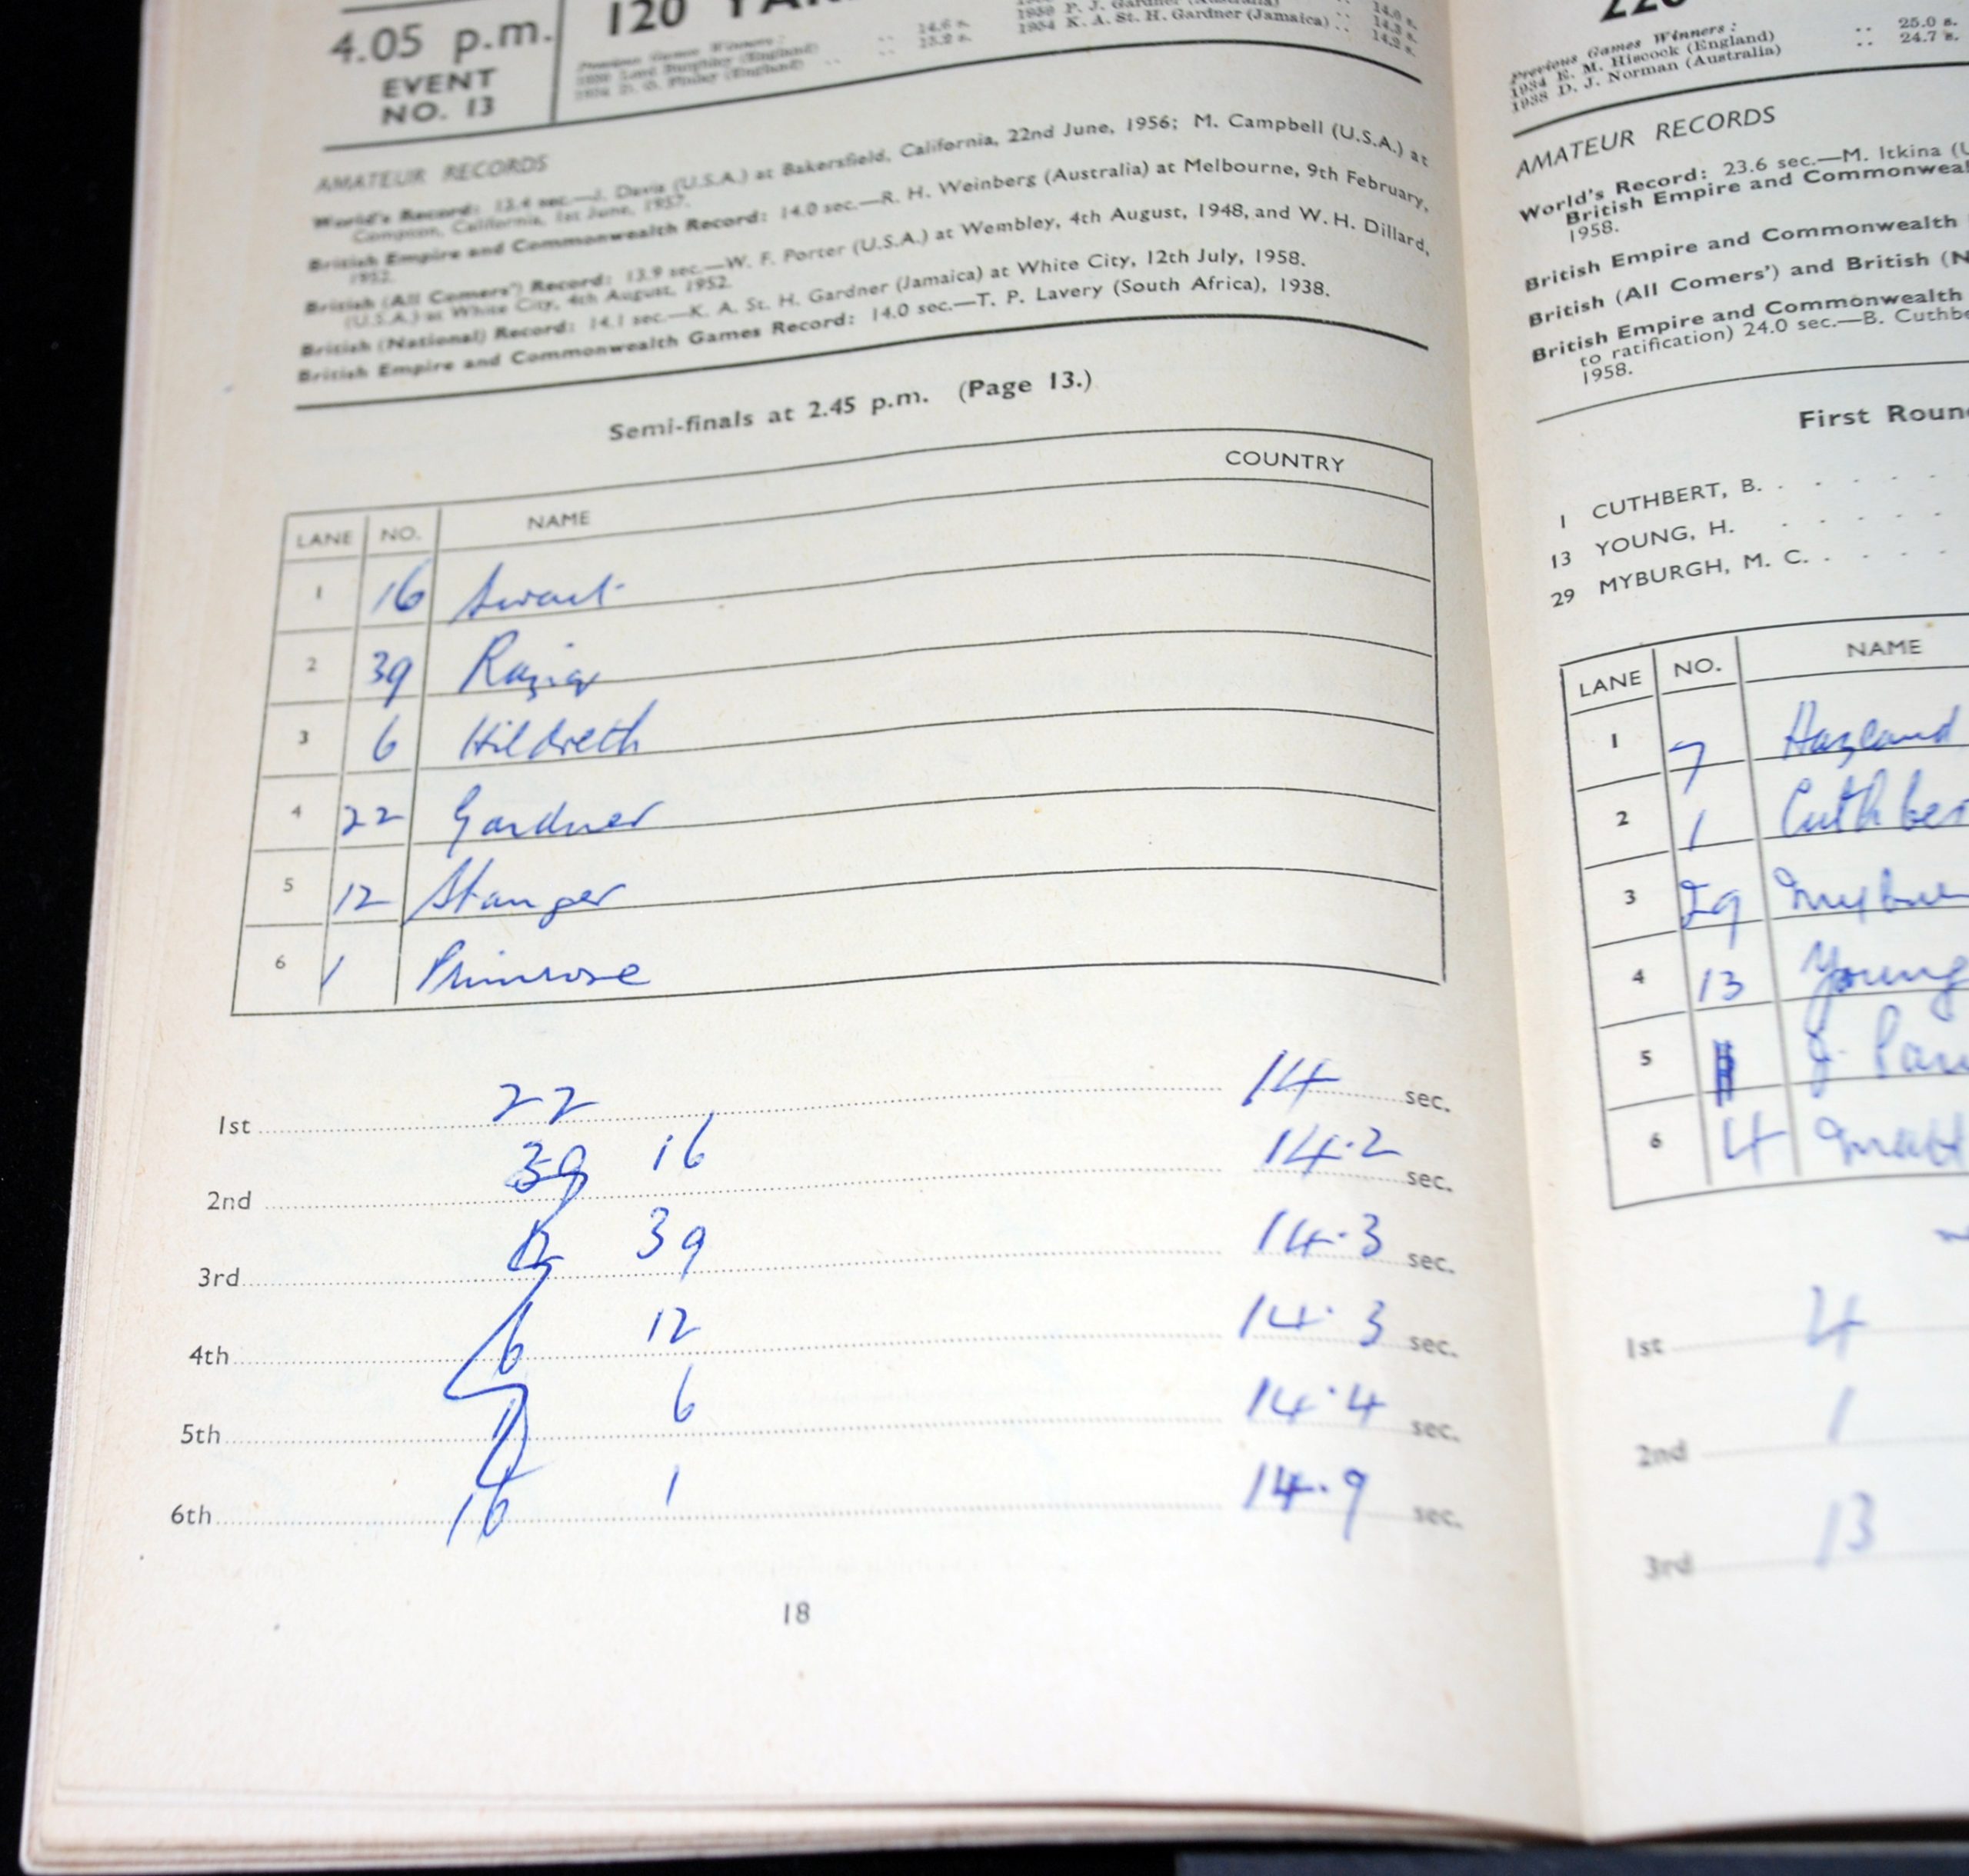 4.05 p.m.
EVENT
NO. 13
120
Previous Games Winners:
1930 Lord Burghley (England) .. 14.6 s.
1934 D. O. Finlay (England) .. .. 15.2 s.
1954 K. A. St. H. Gardner (Jamaica) .. 14.2 s.
AMATEUR RECORDS
World's Record: 13.4 sec.—J. Davis (U.S.A.) at Bakersfield, California, 22nd June, 1956; M. Campbell (U.S.A.) at
Compton, California, 1st June, 1957.
British Empire and Commonwealth Record: 14.0 sec.—R. H. Weinberg (Australia) at Melbourne, 9th February,
1952.
British (All Comers') Record: 13.9 sec.—W. F. Porter (U.S.A.) at Wembley, 4th August, 1948, and W. H. Dillard,
(U.S.A.) at White City, 4th August, 1952.
British (National) Record: 14.1 sec.—K. A. St. H. Gardner (Jamaica) at White City, 12th July, 1958.
British Empire and Commonwealth Games Record: 14.0 sec.—T. P. Lavery (South Africa), 1938.
Semi-finals at 2.45 p.m. (Page 13.)
LANE NO. NAME COUNTRY
1 16 Swart
2 39 Raziq
3 6 Hildreth
4 22 Gardner
5 12 Stanger
6 1 Primrose
1st 22 14 sec.
2nd 39 16 14.2 sec.
3rd 12 39 14.3 sec.
4th 6 12 14.3 sec.
5th 1 6 14.4 sec.
6th 16 1 14.9 sec.
18
220
Previous Games Winners:
1934 E. M. Hiscock (England) .. 25.0 s.
1938 D. J. Norman (Australia) .. 24.7 s.
AMATEUR RECORDS
World's Record: 23.6 sec.—M. Itkina (U
British Empire and Commonweal
1958.
British Empire and Commonwealth
British (All Comers') and British (N
British Empire and Commonwealth
to ratification) 24.0 sec.—B. Cuthbe
1958.
First Roun
1 CUTHBERT, B. . - - -
13 YOUNG, H. - - - -
29 MYBURGH, M. C. . - - -
LANE NO. NAME
1 7
2 1 Cuthber
3 29
4 13 Young
5 J. Pau
6 4 Matt
1st 4
2nd 1
3rd 13